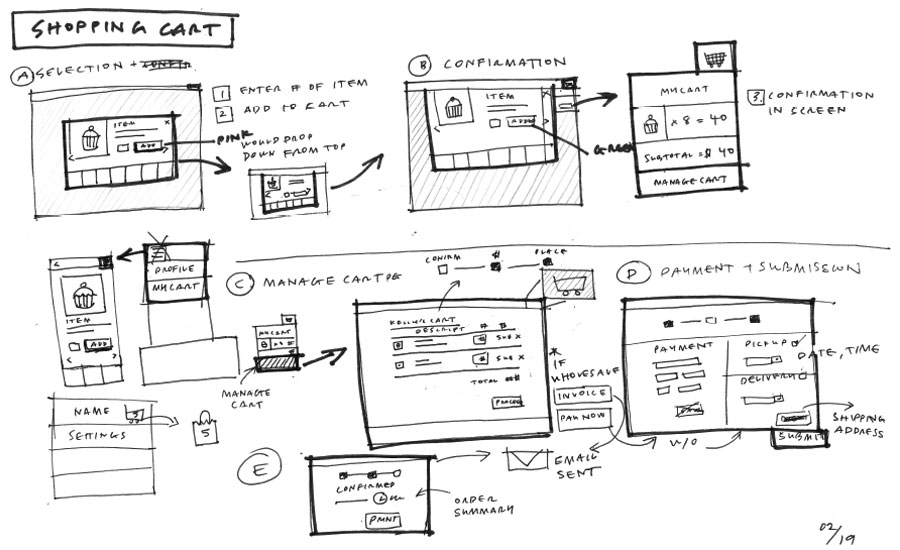 SHOPPING CART
A SELECTION +
1 ENTER # OF ITEM
2 ADD TO CART
ITEM
X
ADD
PINK
WOULD DROP
DOWN FROM TOP
B CONFIRMATION
ITEM
X
ADD
GREEN
MY CART
x 8 = 40
SUBTOTAL = $ 40
MANAGE CART
3. CONFIRMATION
IN SCREEN
PROFILE
MY CART
ITEM
ADD
NAME 5
SETTINGS
5
C MANAGE CART PG
MY CART
MANAGE
CART
CONFIRM
#
PLACE
CART
DESCRIPT # $
SUB X
SUB X
TOTAL ##
PROCEED
* IF
WHOLESALE
INVOICE
PAY NOW
D PAYMENT + SUBMISSION
PAYMENT
PICK UP
DATE, TIME
DELIVERY
SHIPPING
ADDRESS
SUBMIT
W/O
E
CONFIRMED
PRINT
ORDER
SUMMARY
EMAIL
SENT
02/19